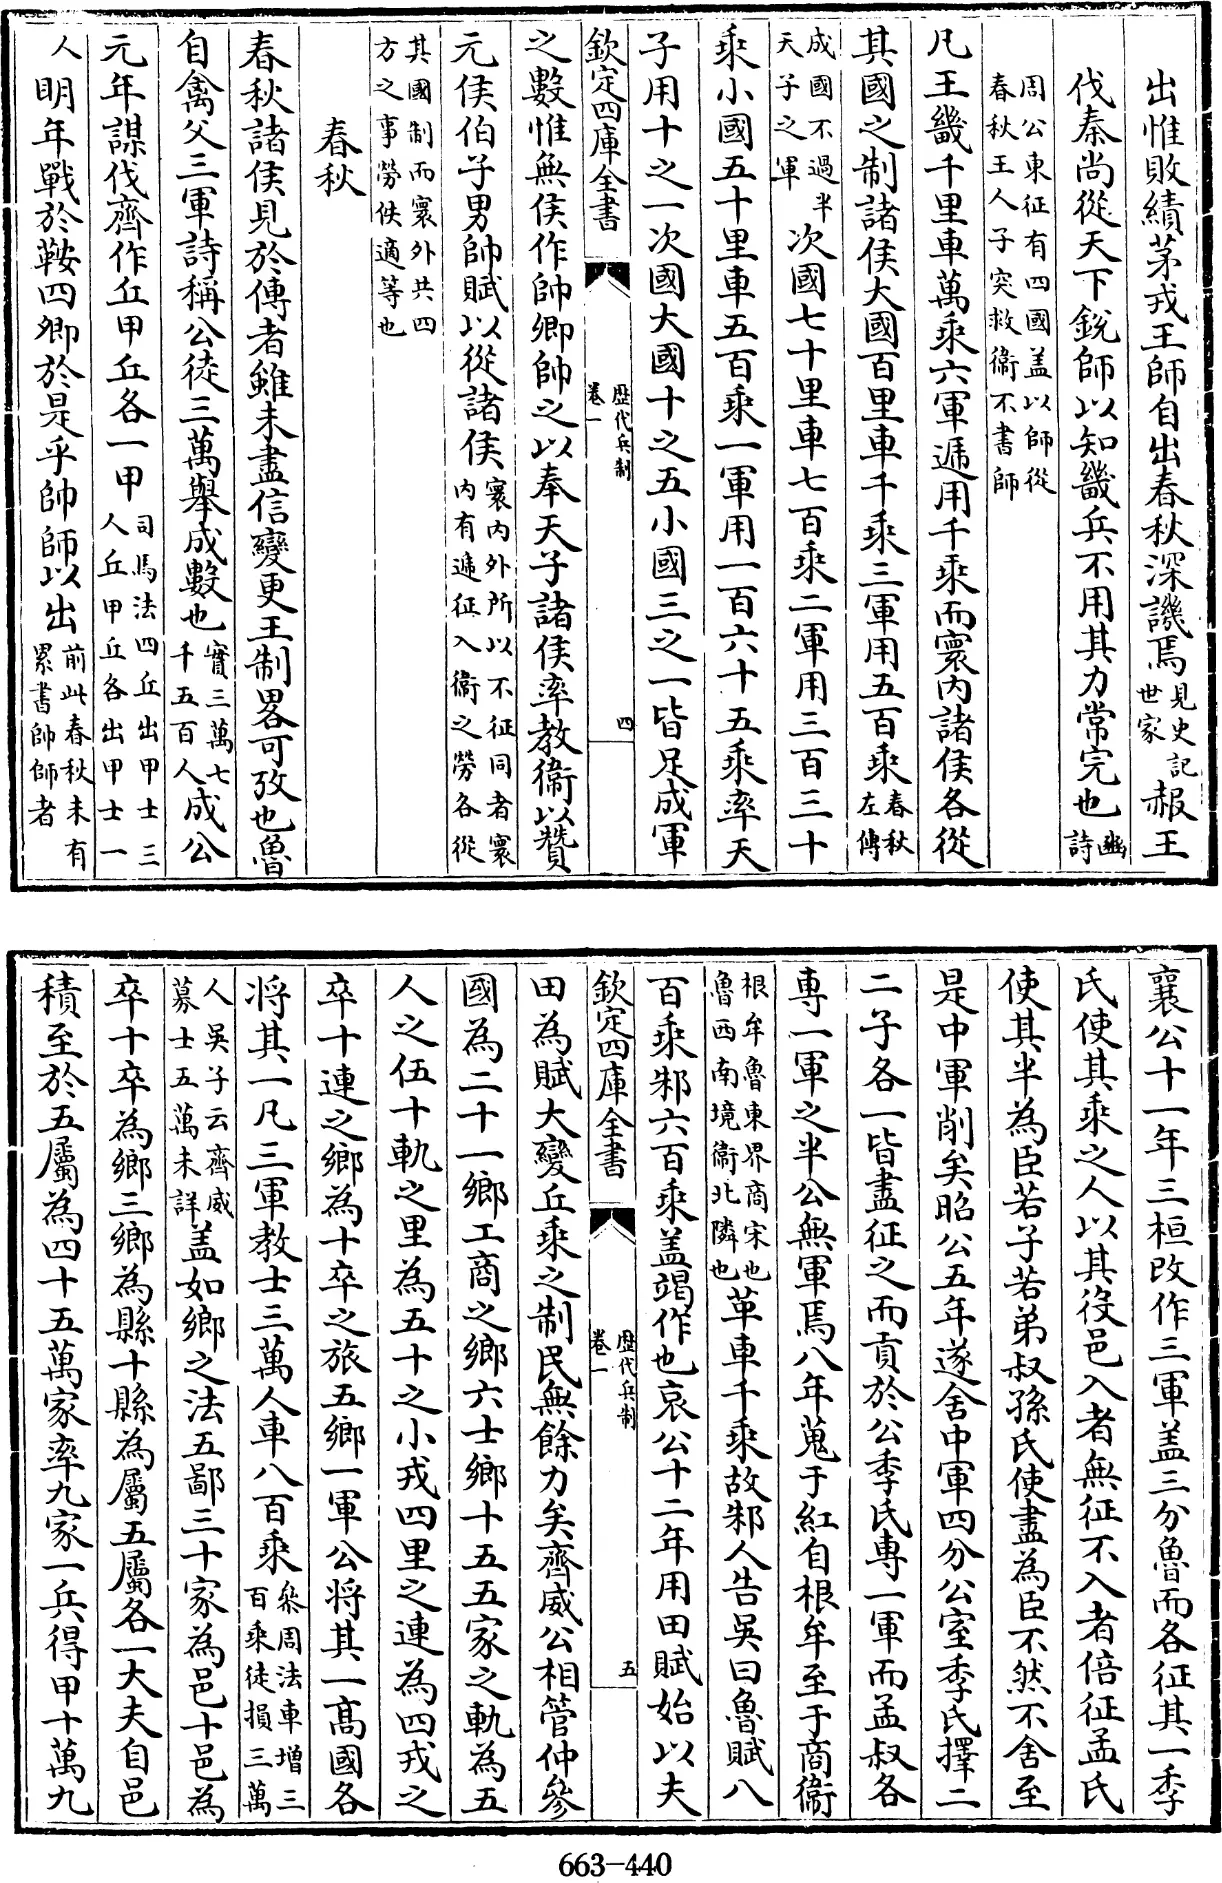 出惟敗績茅戎王師自出春秋深譏焉見史記世家赧王
伐秦尚從天下銳師以知畿兵不用其力常完也豳詩
周公東征有四國盖以師從春秋王人子突救衞不書師
凡王畿千里車萬乘六軍遞用千乘而寰内諸侯各從
其國之制諸侯大國百里車千乘三軍用五百乘春秋左傳
成國不過半天子之軍次國七十里車七百乘二軍用三百三十
乘小國五十里車五百乘一軍用一百六十五乘率天
子用十之一次國大國十之五小國三之一皆足成軍
欽定四庫全書
歷代兵制
卷一
四
之數惟無侯作帥卿帥之以奉天子諸侯率教衞以贊
元侯伯子男帥賦以從諸侯寰内外所以不征同者寰内有遞征入衞之勞各從
其國制而寰外共四方之事勞佚適等也
春秋
春秋諸侯見於傳者雖未盡信變更王制畧可攷也魯
自禽父三軍詩稱公徒三萬舉成數也實三萬七千五百人成公
元年謀伐齊作丘甲丘各一甲司馬法四丘出甲士三人丘甲丘各出甲士一
人明年戰於鞍四卿於是乎帥師以出前此春秋未有累書帥師者
襄公十一年三桓改作三軍盖三分魯而各征其一季
氏使其乘之人以其役邑入者無征不入者倍征孟氏
使其半為臣若子若弟叔孫氏使盡為臣不然不舍至
是中軍削矣昭公五年遂舍中軍四分公室季氏擇二
二子各一皆盡征之而貢於公季氏專一軍而孟叔各
專一軍之半公無軍焉八年蒐于紅自根牟至于商衞
根牟魯東界商宋也魯西南境衞北隣也革車千乘故邾人告吳曰魯賦八
百乘邾六百乘盖竭作也哀公十二年用田賦始以夫
欽定四庫全書
歷代兵制
卷一
五
田為賦大變丘乘之制民無餘力矣齊威公相管仲參
國為二十一鄉工商之鄉六士鄉十五五家之軌為五
人之伍十軌之里為五十之小戎四里之連為四戎之
卒十連之鄉為十卒之旅五鄉一軍公将其一高國各
将其一凡三軍教士三萬人車八百乘叅周法車增三百乘徒損三萬
人吳子云齊威募士五萬未詳盖如鄉之法五鄙三十家為邑十邑為
卒十卒為鄉三鄉為縣十縣為屬五屬各一大夫自邑
積至於五屬為四十五萬家率九家一兵得甲十萬九
663-440